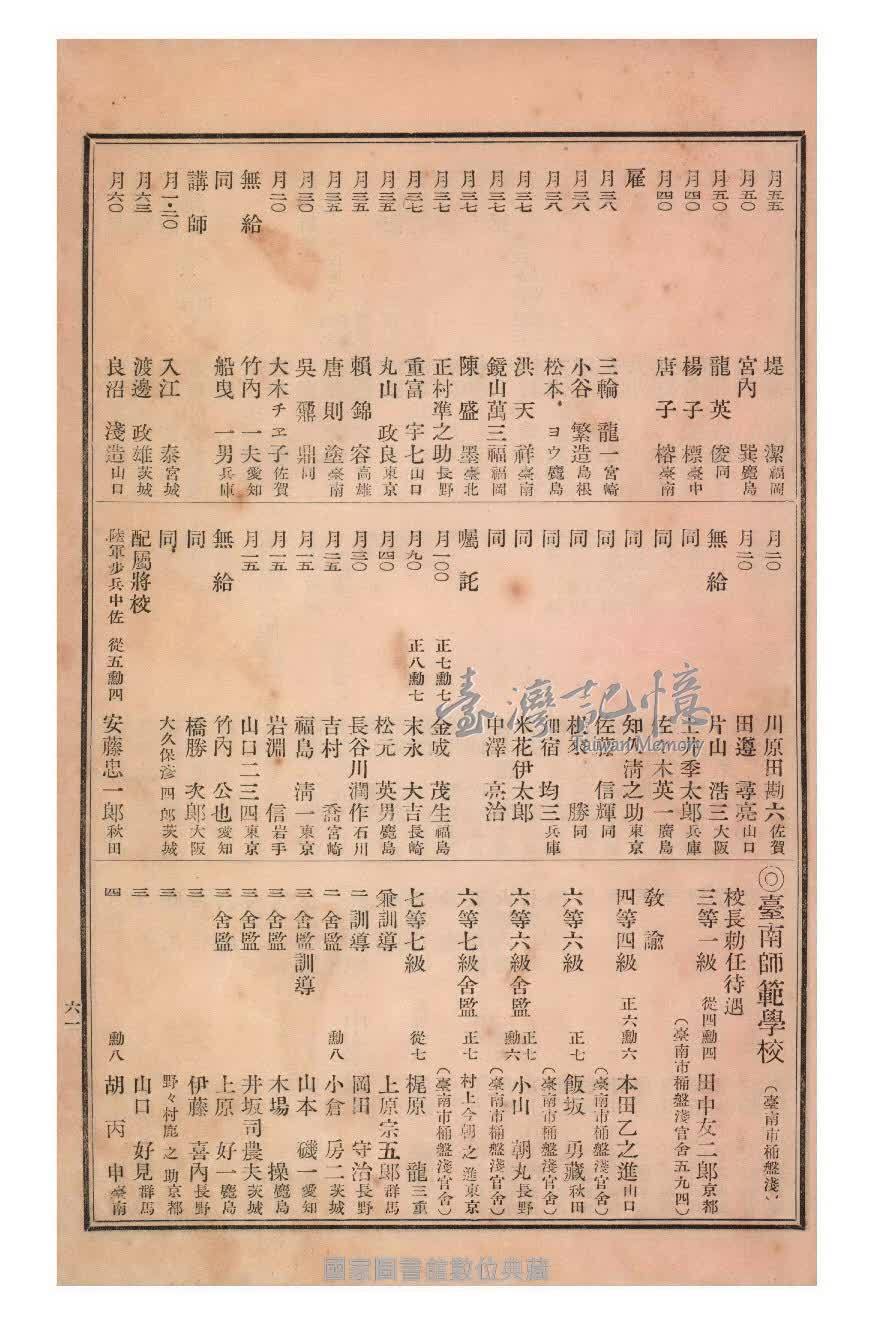 月五五 堤 潔 福岡
月五〇 宮內 巽 鹿島
月五〇 龍 英 俊 同
月四〇 楊 子 標 臺中
月四〇 唐 子 榕 臺南
雇
月三八 三輪 龍一 宮崎
月三八 小谷 繁造 島根
月三八 松本 ヨウ 鹿島
月三七 洪 天 祥 臺南
月三七 鏡山萬三福 福岡
月三七 陳 盛 墨 臺北
月三七 正村準之助 長野
月三七 重富 宇七 山口
月三五 丸山 政良 東京
月三五 賴 錦 容 高雄
月三五 唐 則 塗 臺南
月三〇 吳 鼐 鼎 同
月二〇 大木チヱ子 佐賀
無給 竹內 一夫 愛知
同 船曳 一男 兵庫
講師
月一・二〇 入江 泰 宮城
月六三 渡邊 政雄 茨城
月六〇 良沼 淺造 山口
月二〇 川原田勘六 佐賀
月二〇 田邊 尋亮 山口
無給 片山 浩三 大阪
同 季太郎 兵庫
同 木英一 廣島
同 清之助 東京
同 佐藤 信輝 同
同 根來 勝 同
同 宿 均三 兵庫
同 米花伊太郎
同 中澤 亮治
囑託
月一〇〇 正七勳七 金成 茂生 福島
月九〇 正八勳七 末永 大吉 長崎
月四〇 松元 英男 鹿島
月三〇 長谷川潤作 石川
月二五 吉村 喬 宮崎
月一五 福島 清一 東京
月一五 岩淵 信 岩手
月一五 山口二三四 東京
無給 竹內 公也 愛知
同 橋勝 次郎 大阪
同 大久保彥四郎 茨城
配屬將校
陸軍步兵中佐 從五勳四 安藤忠一郎 秋田
◎臺南師範學校 (臺南市桶盤淺)
校長勅任待遇
三等一級 從四勳四 田中友二郎 京都
(臺南市桶盤淺官舍五九四)
教諭
四等四級 正六勳六 本田乙之進 山口
(臺南市桶盤淺官舍)
六等六級 正七 飯坂 勇藏 秋田
(臺南市桶盤淺官舍)
六等六級舍監 正七勳六 小山 朝丸 長野
(臺南市桶盤淺官舍)
六等七級舍監 正七 村上今朝之進 東京
(臺南市桶盤淺官舍)
七等七級 從七 梶原 龍 三重
兼訓導 上原宗五郎 群馬
二訓導 岡田 守治 長野
二舍監 勳八 小倉 房二 茨城
三舍監訓導 山本 磯一 愛知
三舍監 木場 操 鹿島
三舍監 井坂司農夫 茨城
三舍監 上原 好一 鹿島
三 伊藤 喜內 長野
三 野々村鹿之助 京都
三 山口 好見 群馬
四 勳八 胡 丙 申 臺南
六一
臺灣記憶
Taiwan Memory
國家圖書館數位典藏